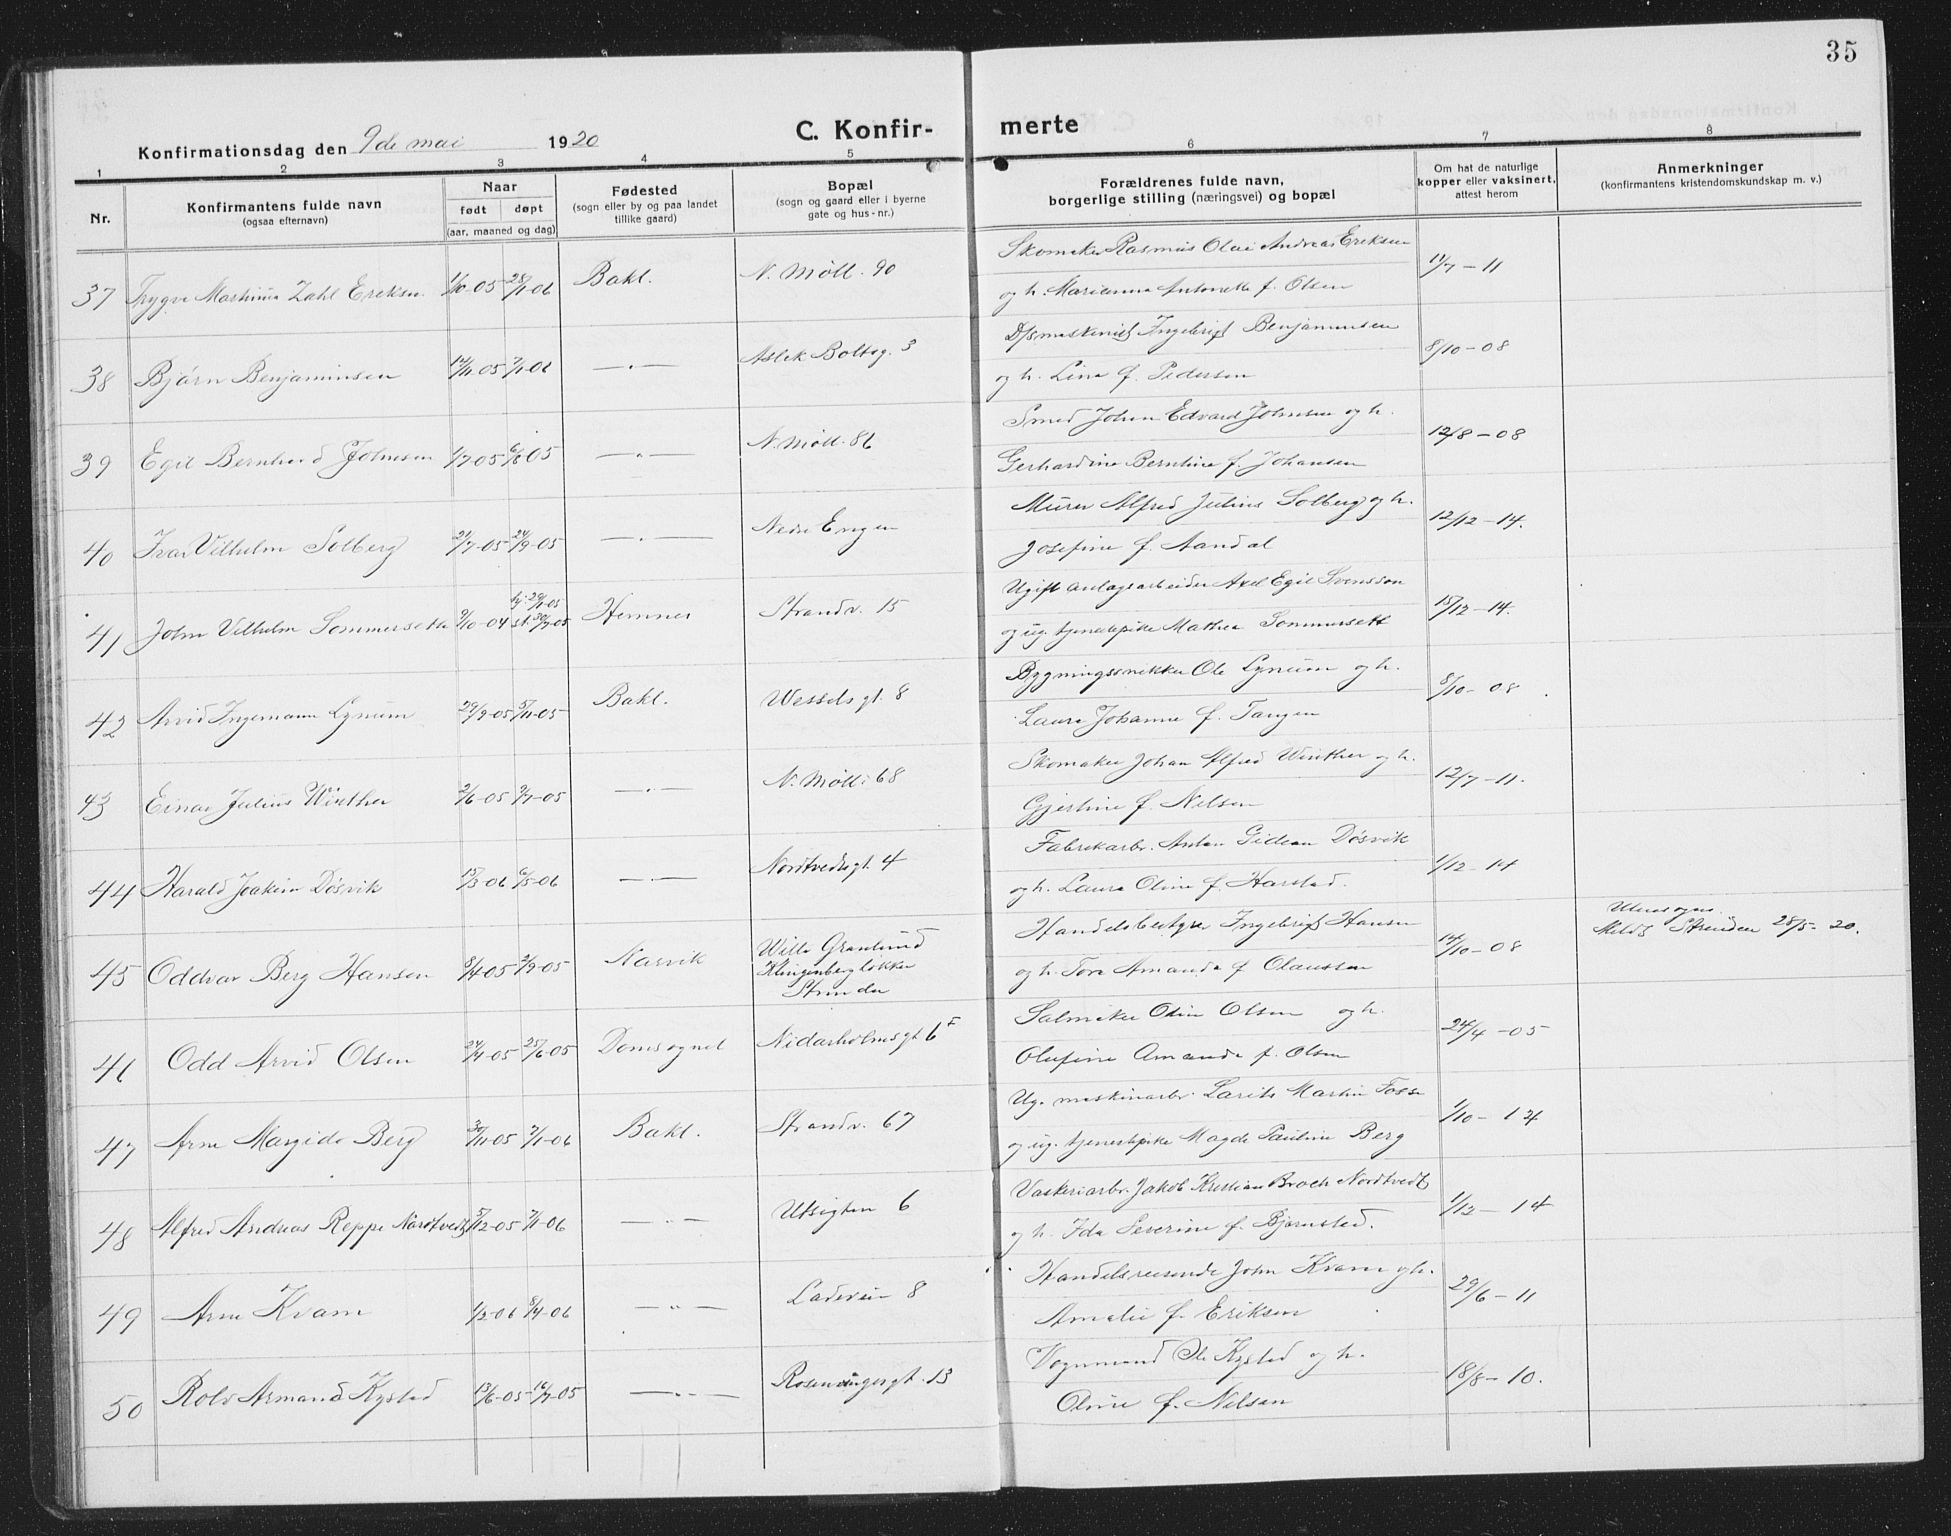 35
Konfirmationsdag den 9de mai 1920
C. Konfir- merte
1 2 3 4 5 6 7 8
Nr.
Konfirmantens fulde navn
(ogsaa efternavn)
Naar
født døpt
(aar, maaned og dag)
Fødested
(sogn eller by og paa landet
tillike gaard)
Bopæl
(sogn og gaard eller i byerne
gate og hus-nr.)
Forældrenes fulde navn,
borgerlige stilling (næringsvei) og bopæl
Om hat de naturlige
kopper eller vaksinert,
attest herom
Anmerkninger
(konfirmantens kristendomskundskap m. v.)
Skomaker Rasmus Olai Andreas Eriksen
37 Trygve Martinus Zahl Eriksen 1/10-05 28/1-06 Bakl. N. Møll. 90 11/7-11
og h. Marianna Antonette f. Olsen
D/smaskinist Ingebrigt Benjaminsen
38 Bjørn Benjaminsen 12/11-05 7/1-06 —„— Aslek Boltsg. 3 8/10-08
og h. Lina f. Pedersen
Smed Johan Edvard Johnsen og h.
39 Egil Bernhard Johnsen 1/7-05 6/8-05 —„— N. Møll. 86 12/8-08
Gerhardine Berntine f. Johansen
Murer Alfred Julius Solberg og h.
40 Ivar Vilhelm Solberg 21/7-05 24/9-05 —„— Nedre Engen 12/12-14.
Josefine f. Aandal
Ugift anlægsarbeider Axel Egil Svensson
41 John Vilhelm Sommersett 9/10-04 hj. 29/1-05 st. 30/7-05 Hemnes Strandv. 15 15/12-14.
og ug. tjenestepike Mathea Sommersett
Bygningssnikker Ole Lynum og h.
42 Arvid Ingemann Lynum 29/9-05 5/11-05 Bakl. Wessels gt. 8 8/10-08
Laura Johanne f. Tangen
Skomaker Johan Alfred Winther og h.
43 Einar Julius Winther 2/6-05 9/7-05 —„— N. Møll. 68 12/7-11.
Gjertine f. Nelsen
Fabrikarbr. Anton Gidean Døsvik
44 Harald Joakim Døsvik 15/3-06 6/5-06 —„— Nordtvedtsgt 4 1/12-14
og h. Laura Oline f. Harstad.
Handelsbestyrer Ingebrigt Hansen
45 Oddvar Berg Hansen 8/4-05 3/9-05 Narvik Villa Granlund
Klingenbergløkke
Strinden 14/10-08
og h. Tora Amanda f. Olaussen
Utensogns.
Meldt Strinden 28/5-20.
Salmaker Odin Olsen og h.
46 Odd Arvid Olsen 24/4-05 25/6-05 Domsognet Nidarholmsgt 6F 24/4-05
Olufine Amanda f. Olsen
Ug. maskinarbr. Laurits Martin Fosse
47 Arne Margido Berg 30/11-05 7/1-06 Bakl. Strandv. 67 1/10-14
og ug. tjenestepike Magda Pauline Berg
Vaskeriarbr. Jakob Kristian Broch Nordtvedt
48 Alfred Andreas Reppe Nordtvedt 5/12-05 7/1-06 —„— Utsigten 6 1/12-14
og h. Ida Severine f. Bjørnstad.
Handelsreisende John Kvam og h.
49 Arne Kvam 1/2-06 8/4-06 —„— Ladevein 8 29/6-11
Amalie f. Eriksen
Vognmand Ole Kystad og h.
50 Rolv Armand Kystad 13/6-05 16/7-05 —„— Rosendagsgt. 13 18/8-10.
Oline f. Nelsen